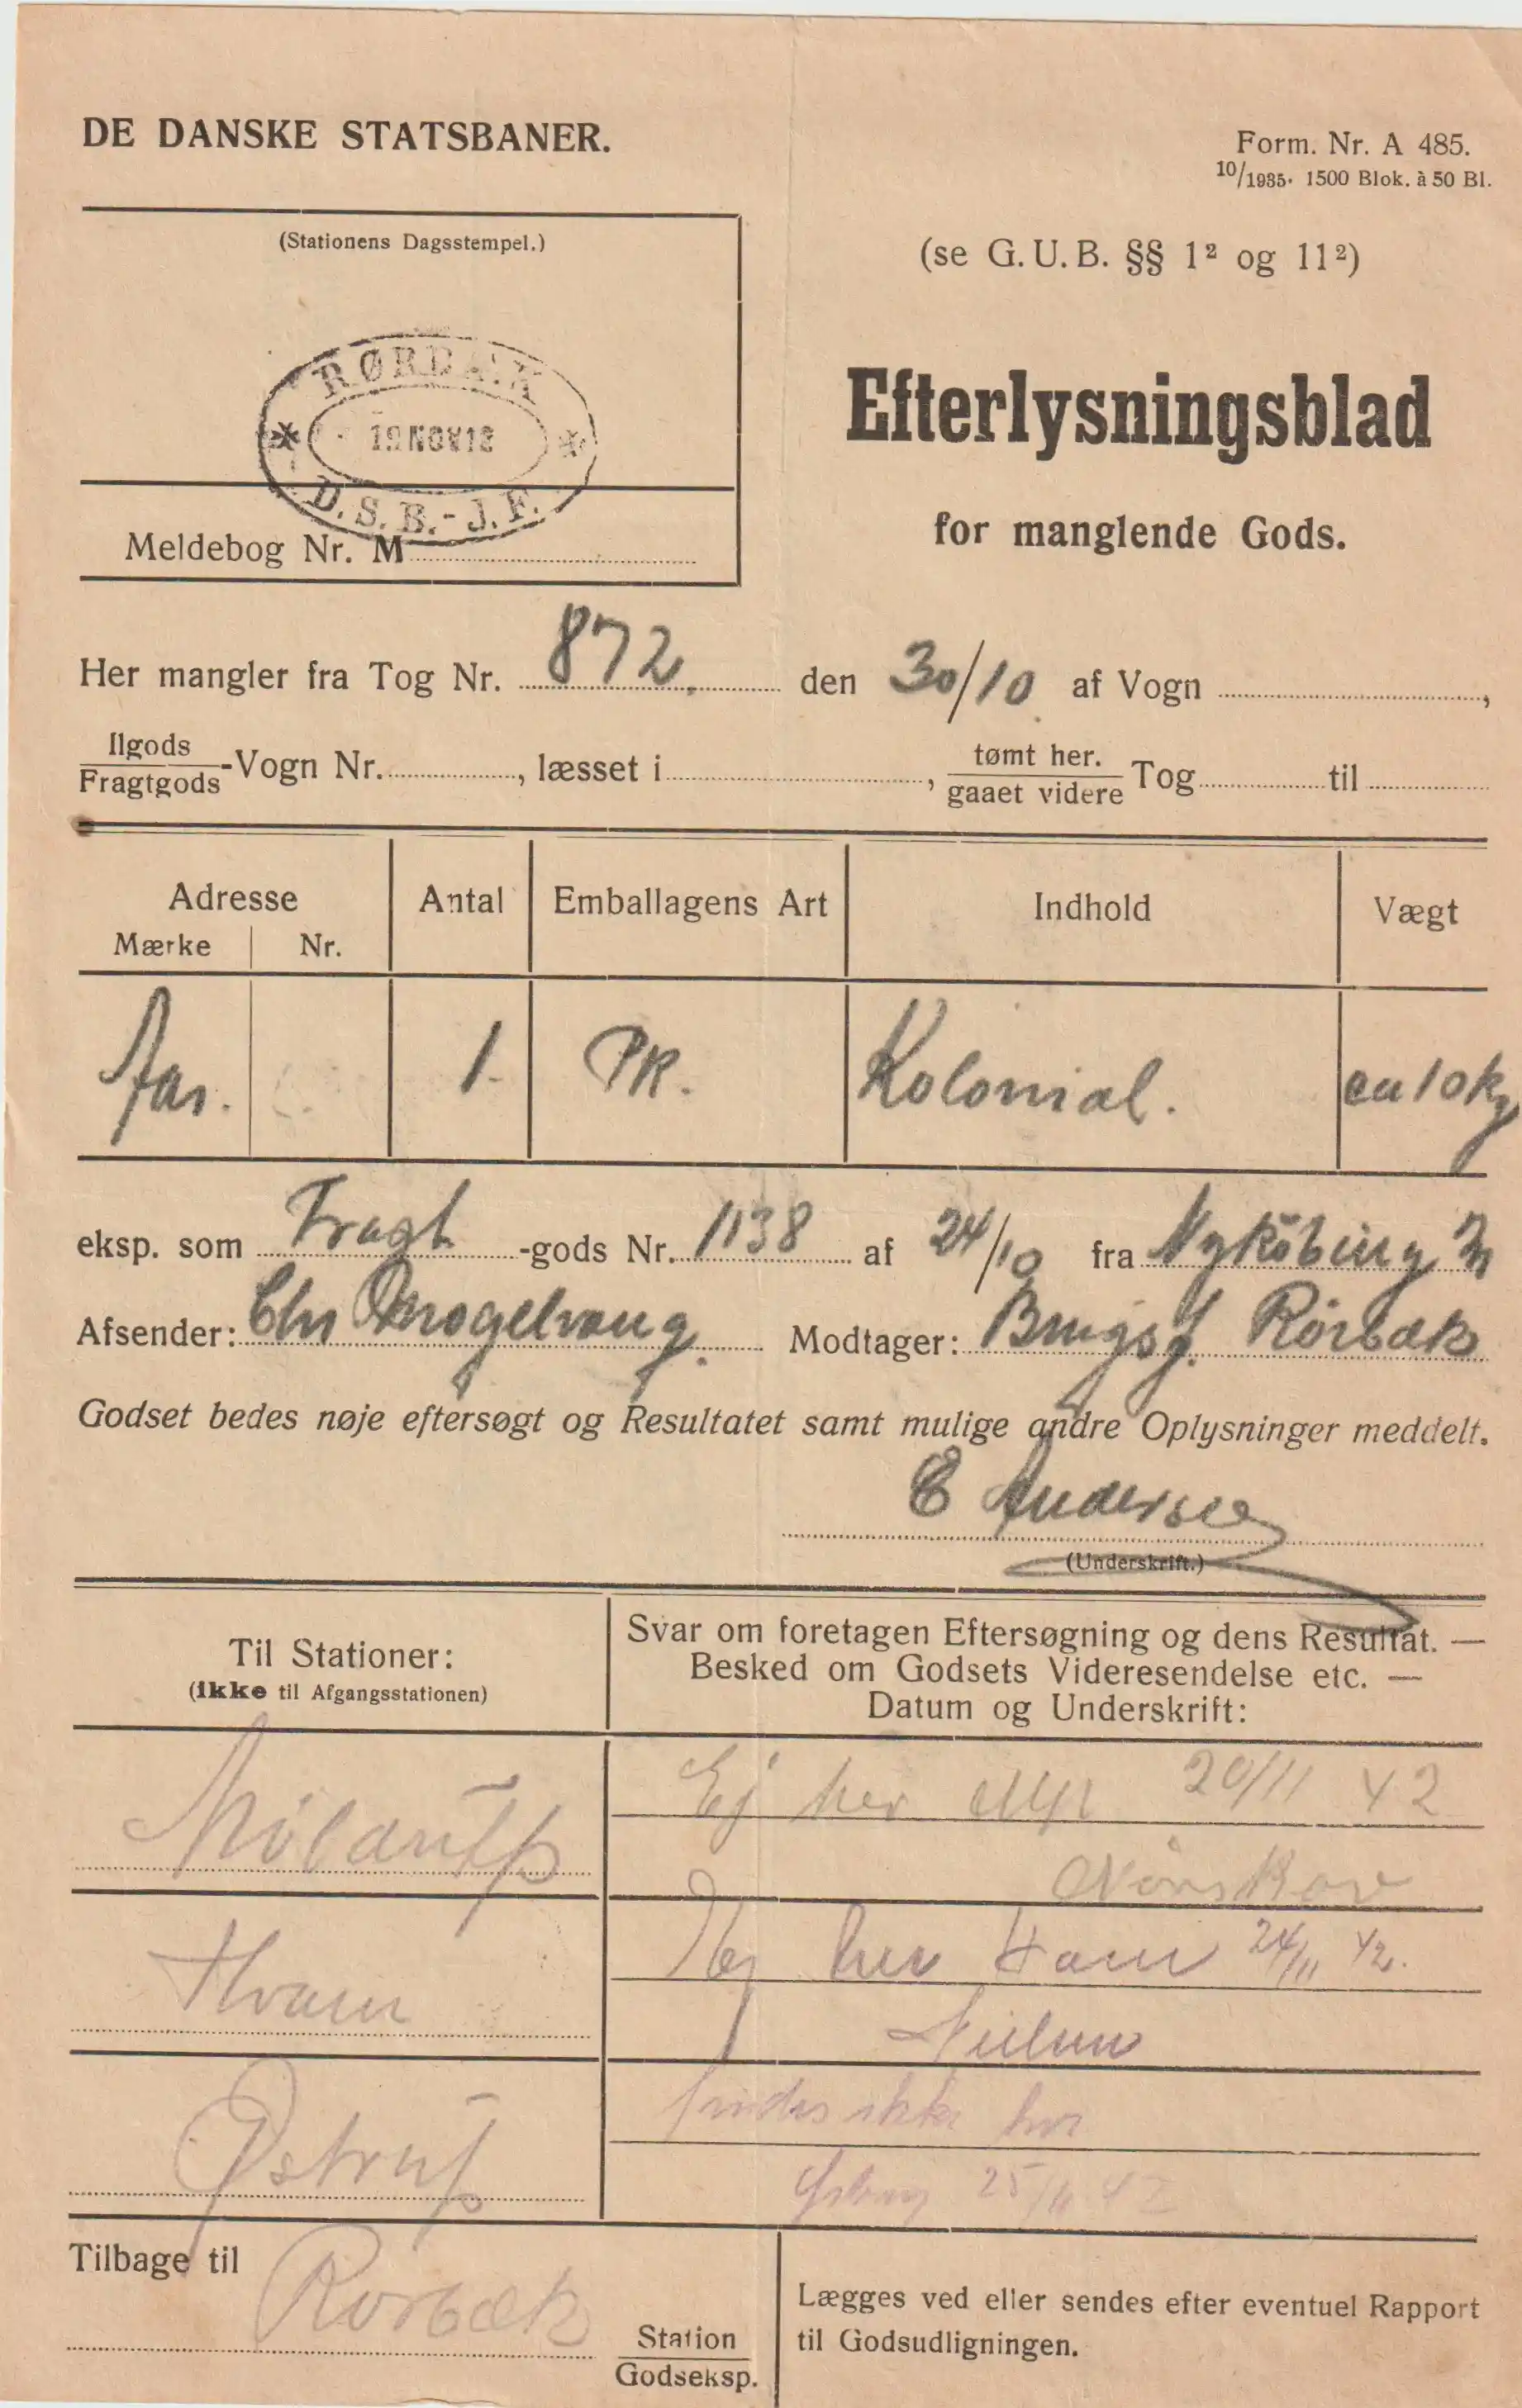 DE DANSKE STATSBANER.
Form. Nr. A 485.
10/1935. 1500 Blok. à 50 Bl.
(Stationens Dagsstempel.)
(se G.U.B. §§ 1² og 11²)
RØRBÆK
19 NOV 18
D.S.B.-J.F.
Efterlysningsblad
for manglende Gods.
Meldebog Nr. M
Her mangler fra Tog Nr. 872. den 30/10 af Vogn ,
Ilgods
Fragtgods -Vogn Nr. , læsset i , tømt her. Tog til
gaaet videre
Adresse Antal Emballagens Art Indhold Vægt
Mærke Nr.
1 Pk. Kolonial. ca 10 kg
eksp. som Fragt -gods Nr. 1138 af 24/10 fra Nykøbing M
Afsender: Chr Modtager: Brugsf. Rørbæk
Godset bedes nøje eftersøgt og Resultatet samt mulige andre Oplysninger meddelt.
E Andersen
(Underskrift.)
Til Stationer:
(ikke til Afgangsstationen)
Svar om foretagen Eftersøgning og dens Resultat. —
Besked om Godsets Videresendelse etc. —
Datum og Underskrift:
Ej her 20/11 42
Hvam
Ej her Hvam 24/11 42.
Nielsen
Østrup
findes ikke her
Østrup 25/11 42
Tilbage til
Rørbæk
Station
Godseksp.
Lægges ved eller sendes efter eventuel Rapport
til Godsudligningen.